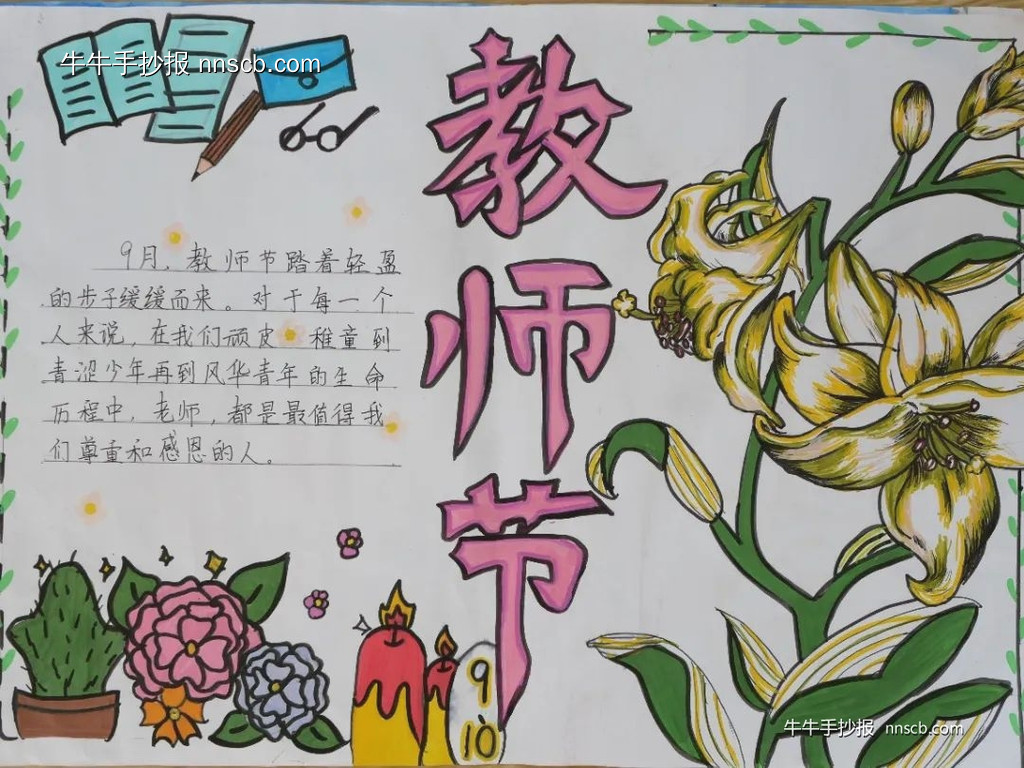 牛牛手抄报 nnscb.com
教
师
节
9月,教师节踏着轻盈
的步子缓缓而来。对于每一个
人来说,在我们顽皮 稚童到
青涩少年再到风华青年的生命
历程中,老师,都是最值得我
们尊重和感恩的人。
9
10
牛牛手抄报 nnscb.com